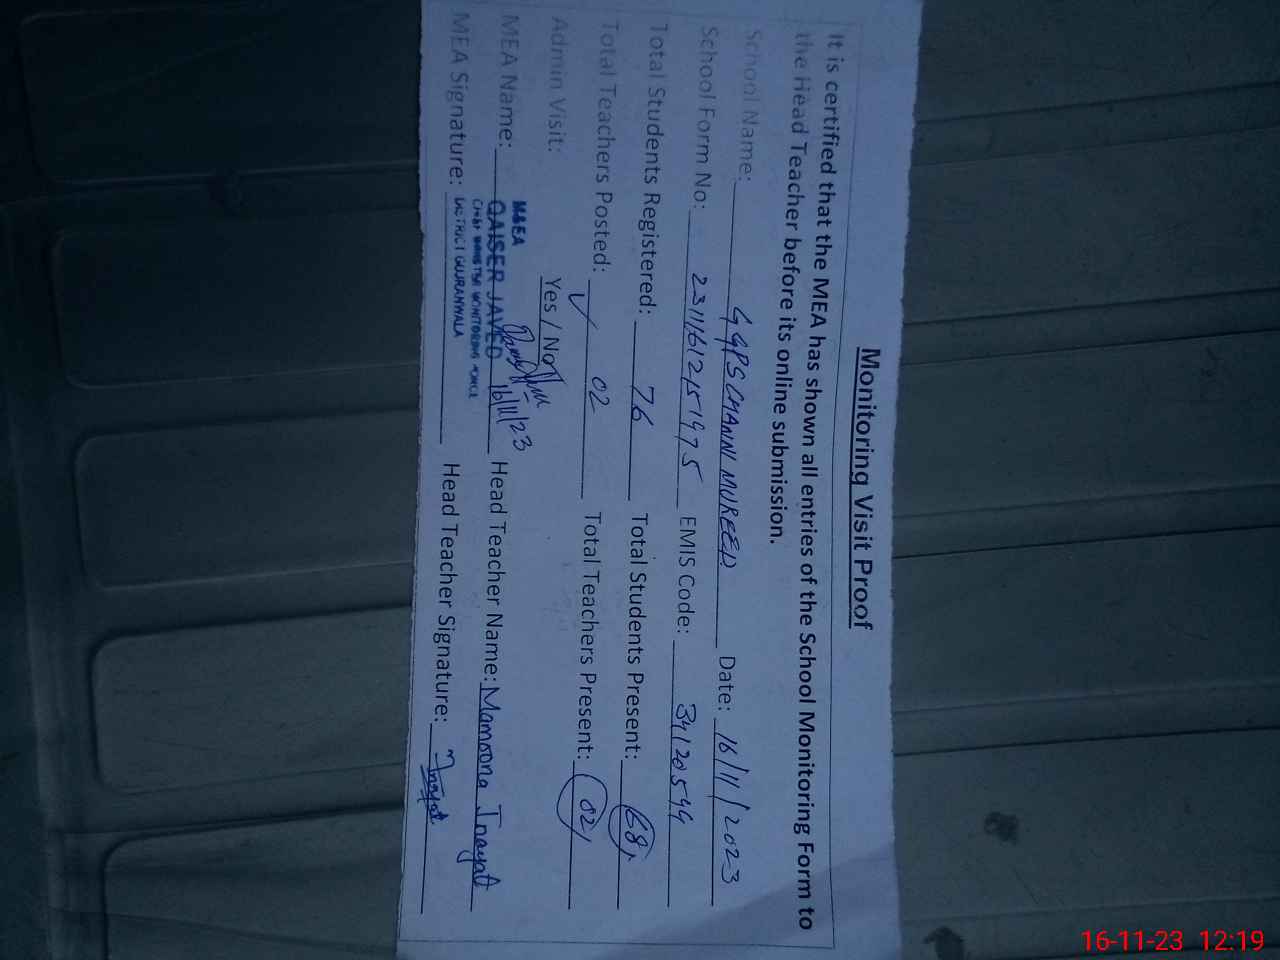 Monitoring Visit Proof
It is certified that the MEA has shown all entries of the School Monitoring Form to
the Head Teacher before its online submission.
School Name: GGPS CHANNI MUREED Date: 16/11/2023
School Form No: 23111612151975 EMIS Code: 34120544
Total Students Registered: 76 Total Students Present: 68
Total Teachers Posted: 02 Total Teachers Present: 02
Admin Visit: Yes / No
M&EA
MEA Name: QAISER JAVED 16/11/23 Head Teacher Name: Mamoona Inayat
CHIEF MINISTER MONITORING FORCE
MEA Signature: DISTRICT GUJRANWALA Head Teacher Signature: Inayat
16-11-23 12:19